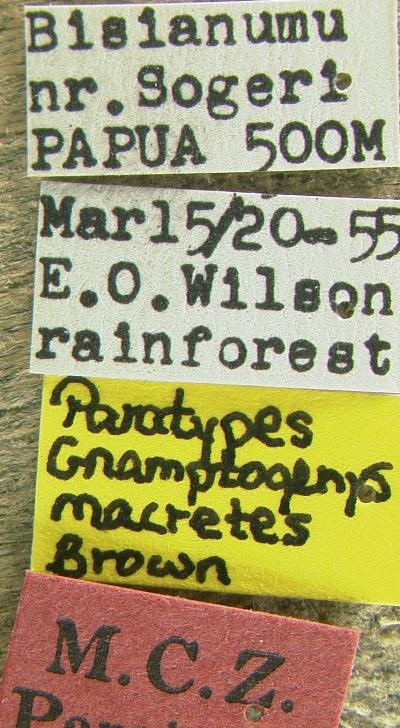 Bisianumu
nr. Sogeri
PAPUA 500M
Mar15/20-55
E.O.Wilson
rainforest
Paratypes
Gnamptogenys
macretes
Brown
M.C.Z.